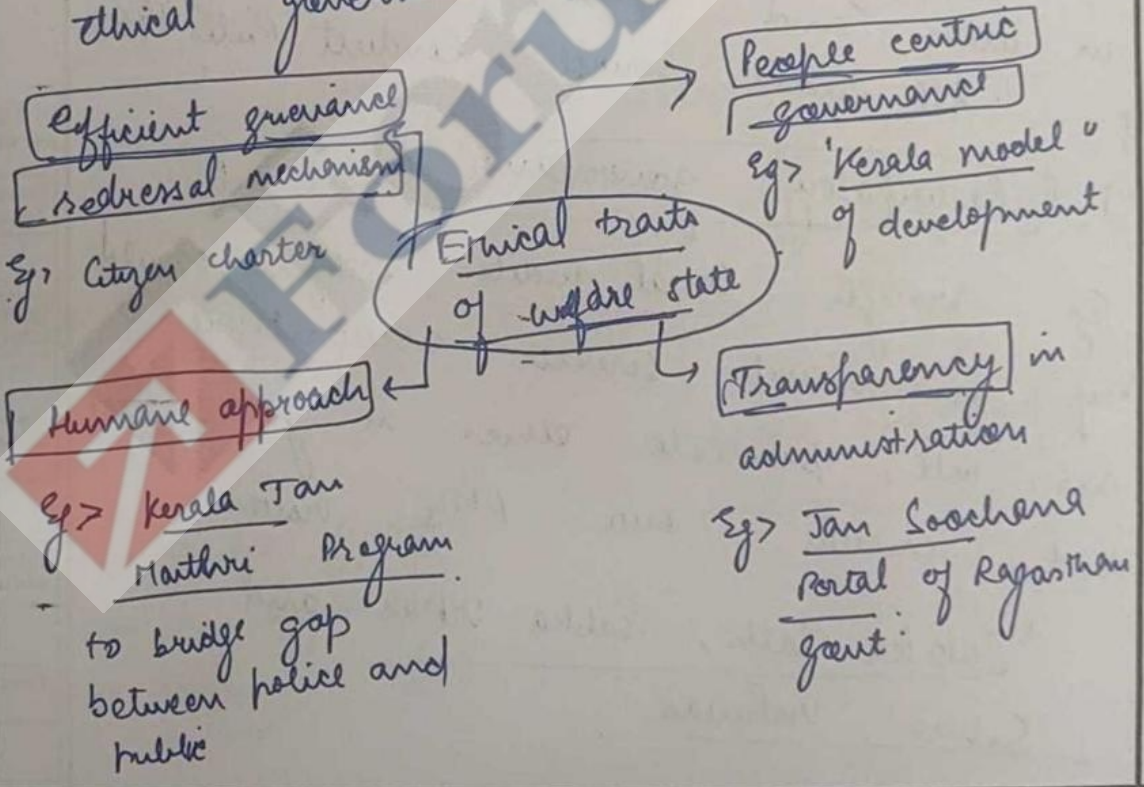 ethical
efficient grievance
redressal mechanism
Eg> Citizen charter
People centric
governance
Eg> "Kerala model"
of development
Ethical traits
of welfare state
Humane approach
Eg> Kerala Jan
Maithri Program
to bridge gap
between police and
public
Transparency in
administration
Eg> Jan Soochana
Portal of Rajasthan
govt.
Foru